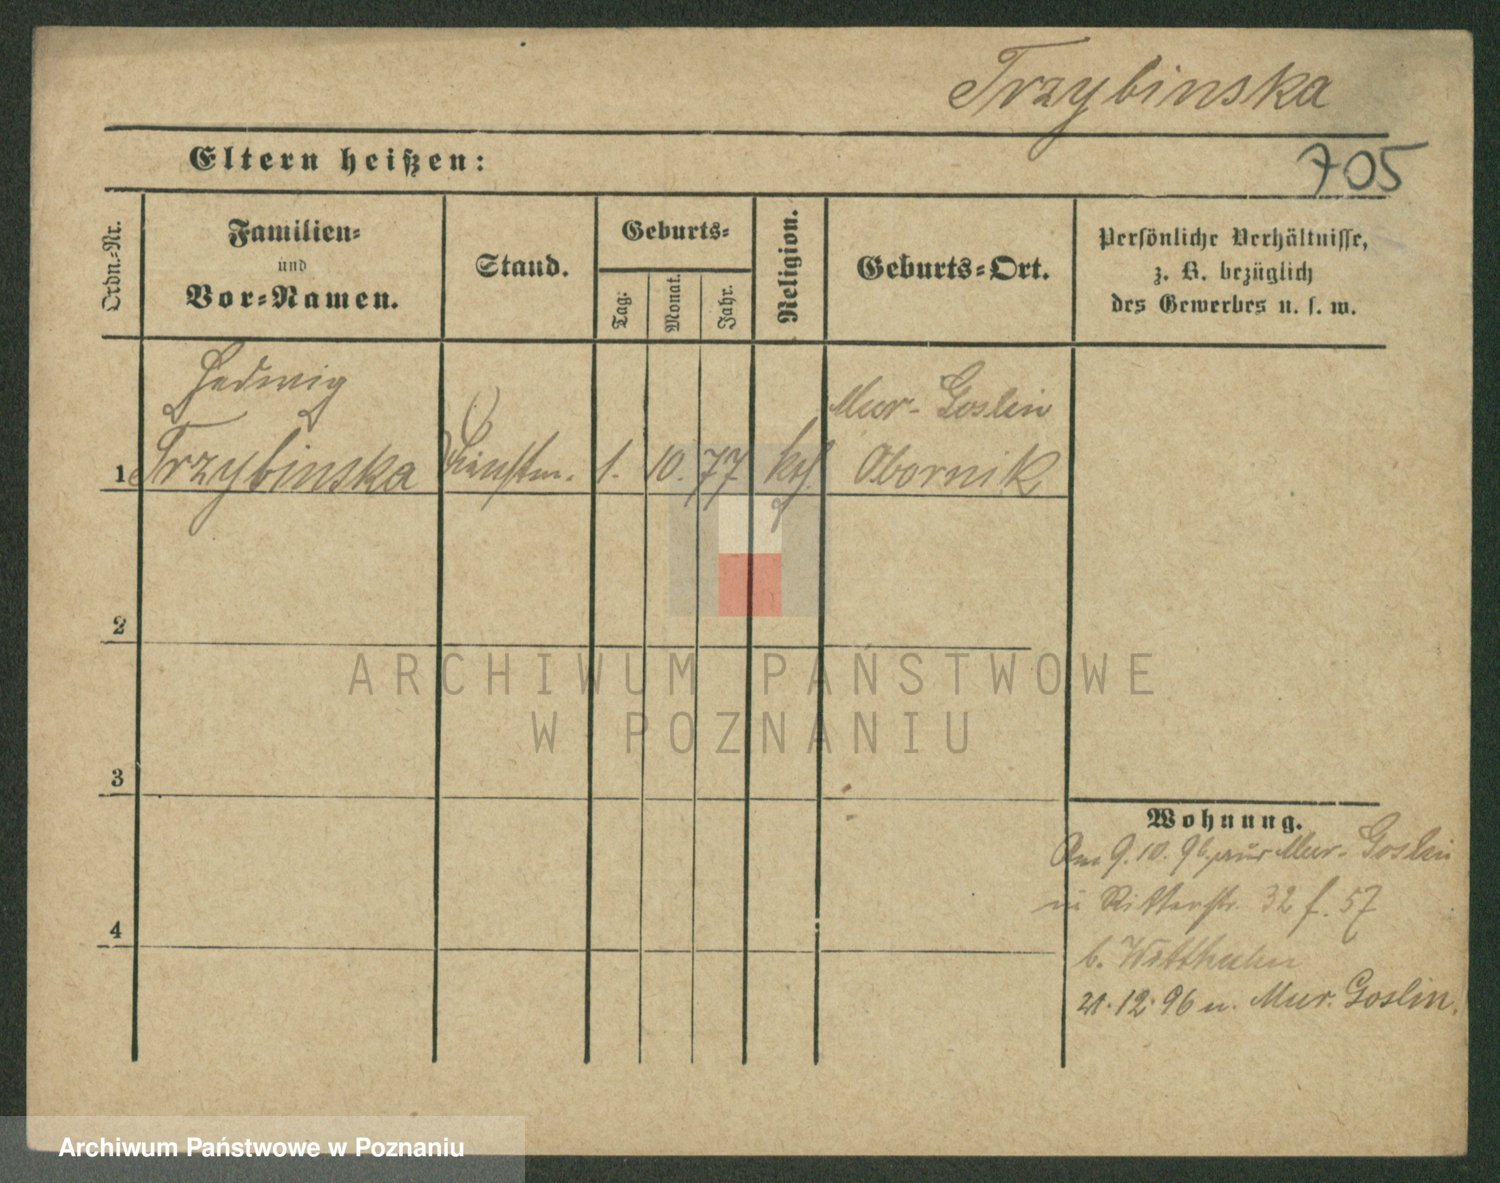 Trzybinska
Eltern heißen:
705
Ordn.-Nr.
Familien-
und
Vor-Namen.
Stand.
Geburts-
Tag:
Monat.
Jahr.
Religion.
Geburts-Ort.
Persönliche Verhältnisse,
z. B. bezüglich
des Gewerbes u. s. w.
Hedwig
Mur-Goslin
1 Trzybinska Dienstm. 1. 10. 77 kth. Obornik
2
ARCHIWUM PAŃSTWOWE
W POZNANIU
3
4
Wohnung.
Am 9.10.96 aus Mur-Goslin
in Ritterstr. 32 f. 57
b.
21.12.96 n. Mur. Goslin.
Archiwum Państwowe w Poznaniu